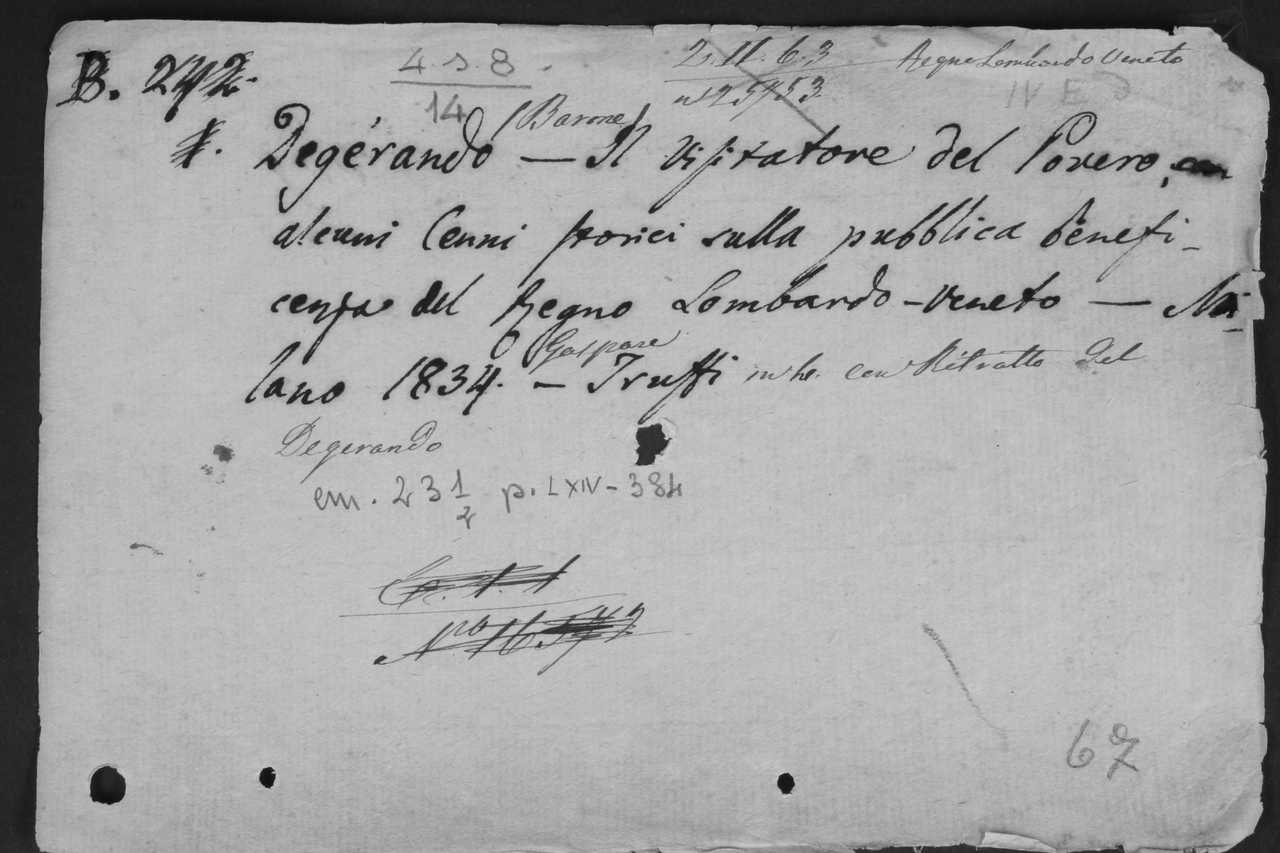 B. 242.
4.s.8.
14
2.11.6.3
nº 25953
Regno Lombardo Veneto
(Barone)
Degérando — Il visitatore del Povero, con
alcuni Cenni storici sulla pubblica benefi-
cenza del Regno Lombardo-Veneto — Mi-
Gaspare
lano 1834. — Truffi in 16. con Ritratto del
Degerando
cm. 23 1/2 p. LXIV-384
Nro 16
67